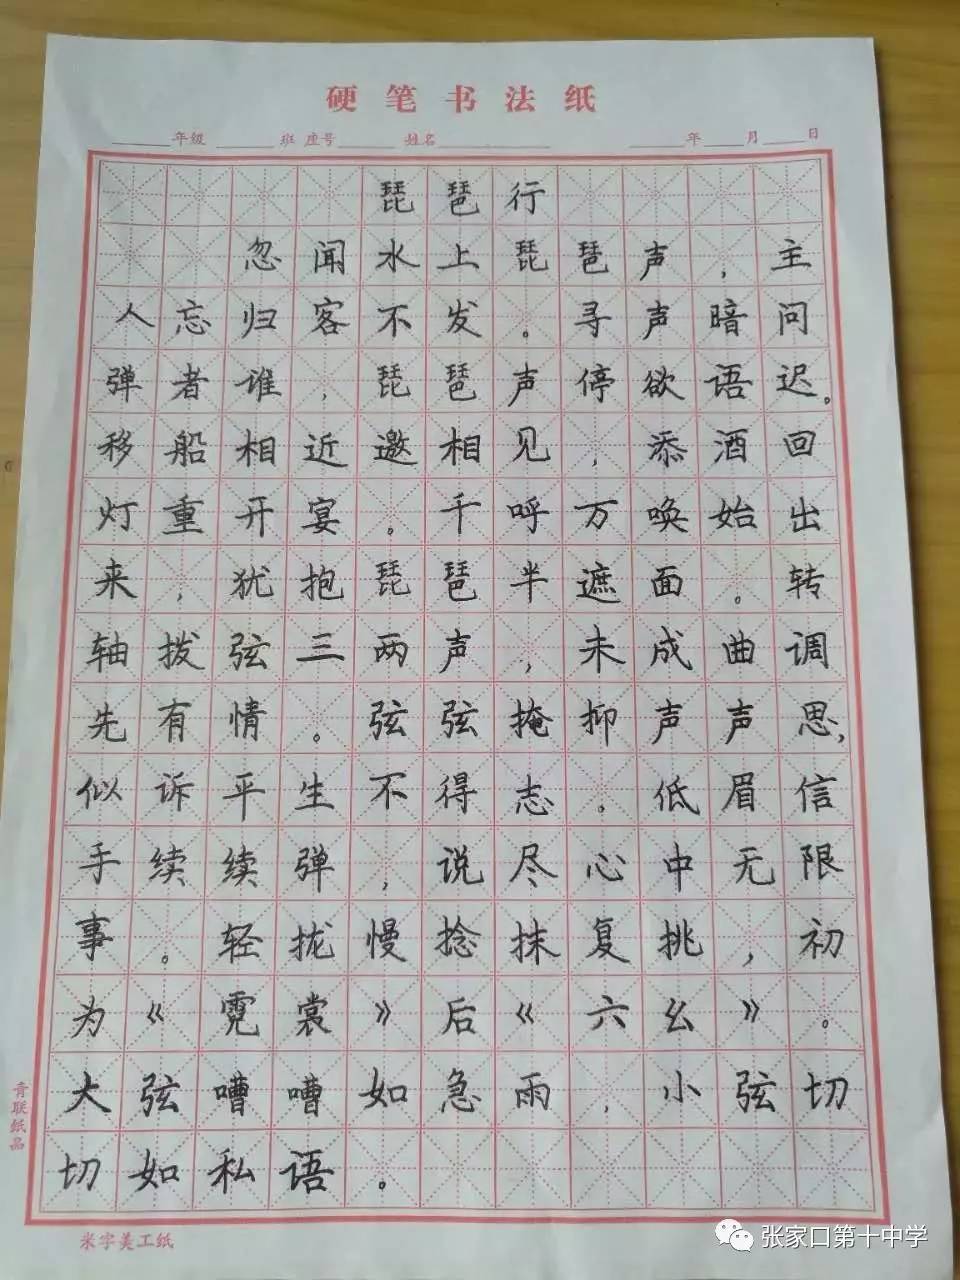 硬笔书法纸
年级 班 座号 姓名 年 月 日
琵琶行
忽闻水上琵琶声,主
人忘归客不发。寻声暗问
弹者谁,琵琶声停欲语迟。
移船相近邀相见,添酒回
灯重开宴。千呼万唤始出
来,犹抱琵琶半遮面。转
轴拨弦三两声,未成曲调
先有情。弦弦掩抑声声思,
似诉平生不得志。低眉信
手续续弹,说尽心中无限
事。轻拢慢捻抹复挑,初
为《霓裳》后《六幺》。
大弦嘈嘈如急雨,小弦切
切如私语。
青联纸品
米字美工纸
张家口第十中学